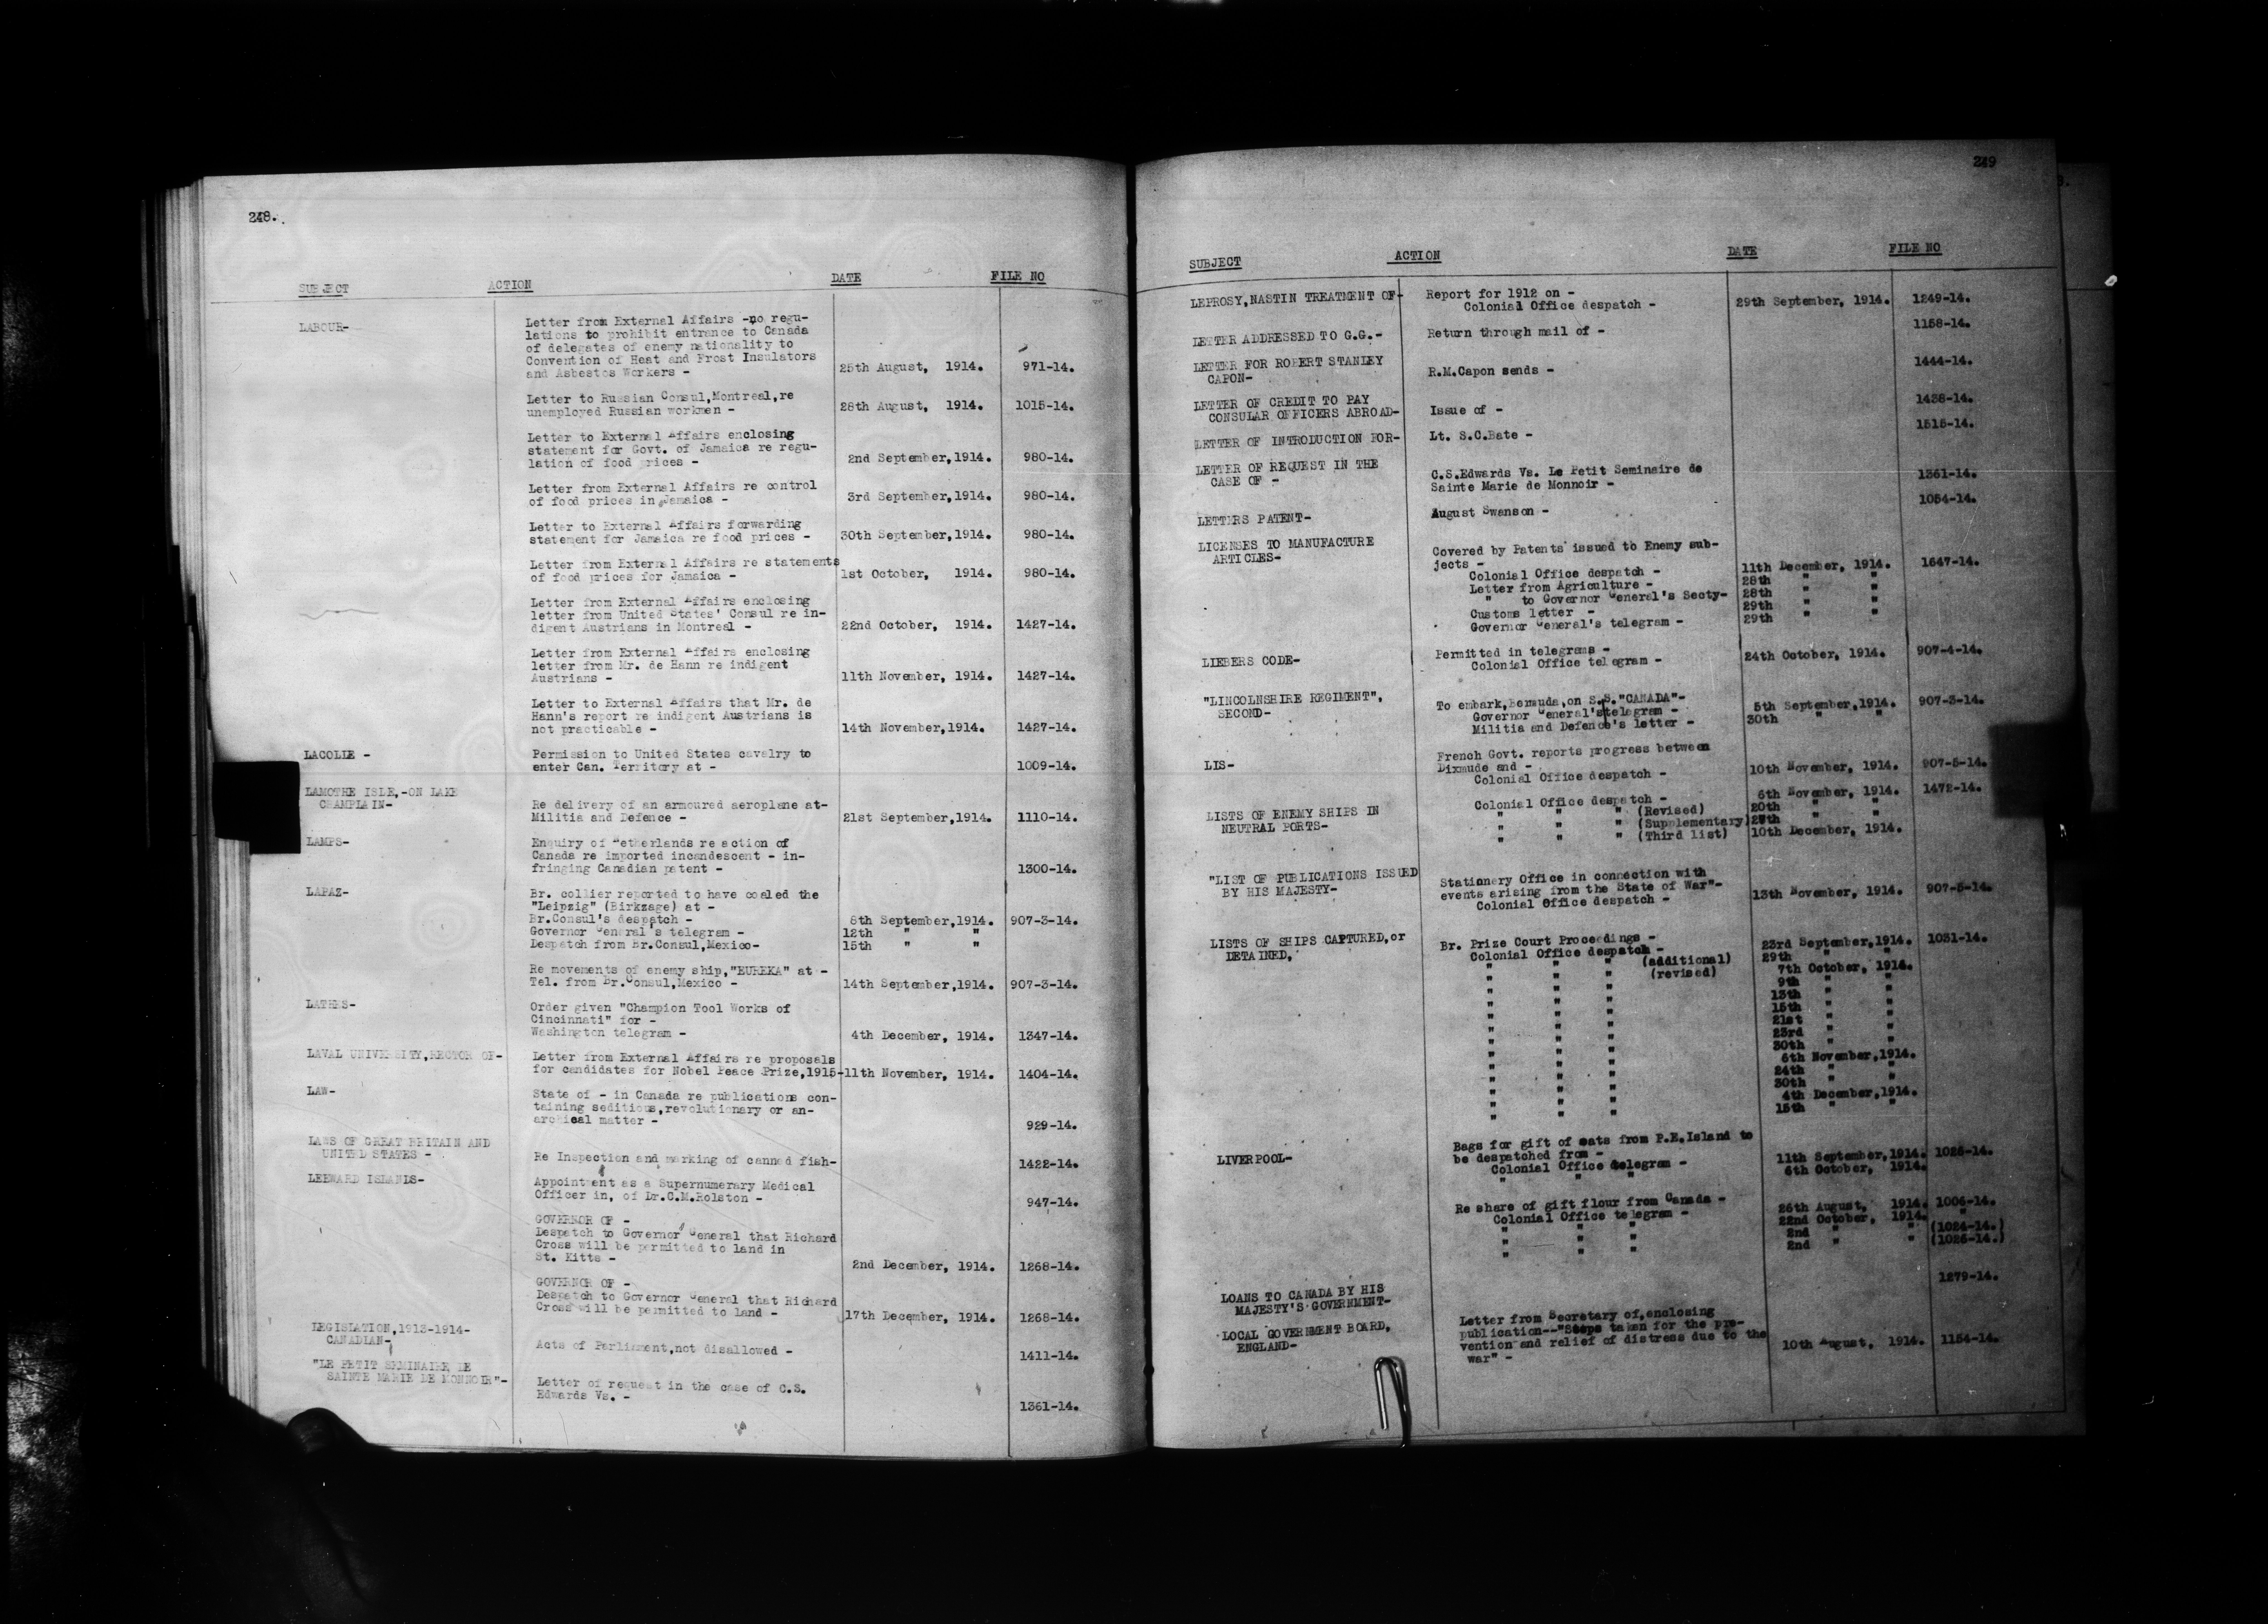 248.
SUBJECT ACTION DATE FILE NO
LABOUR- Letter from External Affairs -no regu-
lations to prohibit entrance to Canada
of delegates of enemy nationality to
Convention of Heat and Frost Insulators
and Asbestos Workers - 25th August, 1914. 971-14.
Letter to Russian Consul,Montreal,re
unemployed Russian workmen - 28th August, 1914. 1015-14.
Letter to External Affairs enclosing
statement for Govt. of Jamaica re regu-
lation of food prices - 2nd September,1914. 980-14.
Letter from External Affairs re control
of food prices in Jamaica - 3rd September,1914. 980-14.
Letter to External Affairs forwarding
statement for Jamaica re food prices - 30th September,1914. 980-14.
Letter from External Affairs re statements
of food prices for Jamaica - 1st October, 1914. 980-14.
Letter from External Affairs enclosing
letter from United States' Consul re in-
digent Austrians in Montreal - 22nd October, 1914. 1427-14.
Letter from External Affairs enclosing
letter from Mr. de Hann re indigent
Austrians - 11th November, 1914. 1427-14.
Letter to External Affairs that Mr. de
Hann's report re indigent Austrians is
not practicable - 14th November,1914. 1427-14.
LACOLLE - Permission to United States cavalry to
enter Can. Territory at - 1009-14.
LAMOTHE ISLE,-ON LAKE
CHAMPLAIN- Re delivery of an armoured aeroplane at-
Militia and Defence - 21st September,1914. 1110-14.
LAMPS- Enquiry of Netherlands re action of
Canada re imported incandescent - in-
fringing Canadian patent - 1300-14.
LAPAZ- Br. collier reported to have coaled the
"Leipzig" (Birkzage) at -
Br.Consul's despatch - 8th September,1914. 907-3-14.
Governor General's telegram - 12th " "
Despatch from Br.Consul,Mexico- 15th " "
Re movements of enemy ship,"EUREKA" at -
Tel. from Br.Consul,Mexico - 14th September,1914. 907-3-14.
LATHES- Order given "Champion Tool Works of
Cincinnati" for -
Washington telegram - 4th December, 1914. 1347-14.
LAVAL UNIVERSITY,RECTOR OF- Letter from External Affairs re proposals
for candidates for Nobel Peace Prize,1915- 11th November, 1914. 1404-14.
LAW- State of - in Canada re publications con-
taining seditious,revolutionary or an-
archical matter - 929-14.
LAWS OF GREAT BRITAIN AND
UNITED STATES - Re Inspection and marking of canned fish- 1422-14.
LEEWARD ISLANDS- Appointment as a Supernumerary Medical
Officer in, of Dr.C.M.Rolston - 947-14.
GOVERNOR OF -
Despatch to Governor General that Richard
Cross will be permitted to land in
St. Kitts - 2nd December, 1914. 1268-14.
GOVERNOR OF -
Despatch to Governor General that Richard
Cross will be permitted to land - 17th December, 1914. 1268-14.
LEGISLATION,1913-1914-
CANADIAN- Acts of Parliament,not disallowed - 1411-14.
"LE PETIT SEMINAIRE DE
SAINTE MARIE DE MONNOIR"- Letter of request in the case of C.S.
Edwards Vs. - 1361-14.
249
SUBJECT ACTION DATE FILE NO
LEPROSY,NASTIN TREATMENT OF- Report for 1912 on -
Colonial Office despatch - 29th September, 1914. 1249-14.
LETTER ADDRESSED TO G.G.- Return through mail of - 1158-14.
LETTER FOR ROBERT STANLEY
CAPON- R.M.Capon sends - 1444-14.
LETTER OF CREDIT TO PAY
CONSULAR OFFICERS ABROAD- Issue of - 1438-14.
LETTER OF INTRODUCTION FOR- Lt. S.C.Bate - 1515-14.
LETTER OF REQUEST IN THE
CASE OF - C.S.Edwards Vs. Le Petit Seminaire de
Sainte Marie de Monnoir - 1361-14.
LETTERS PATENT- August Swanson - 1054-14.
LICENSES TO MANUFACTURE
ARTICLES- Covered by Patents issued to Enemy sub-
jects -
Colonial Office despatch - 11th December, 1914. 1647-14.
Letter from Agriculture - 28th " "
" to Governor General's Secty- 28th " "
Customs letter - 29th " "
Governor General's telegram - 29th " "
LIEBERS CODE- Permitted in telegrams -
Colonial Office telegram - 24th October, 1914. 907-4-14.
"LINCOLNSHIRE REGIMENT",
SECOND- To embark,Bermuda,on S.S."CANADA"-
Governor General's telegram - 5th September,1914. 907-3-14.
Militia and Defence's letter - 30th " "
LIS- French Govt. reports progress between
Dixmude and -
Colonial Office despatch - 10th November, 1914. 907-5-14.
LISTS OF ENEMY SHIPS IN
NEUTRAL PORTS- Colonial Office despatch - 6th November, 1914. 1472-14.
" " " (Revised) 20th " "
" " " (Supplementary) 27th " "
" " " (Third list) 10th December, 1914.
"LIST OF PUBLICATIONS ISSUED
BY HIS MAJESTY- Stationery Office in connection with
events arising from the State of War"-
Colonial Office despatch - 13th November, 1914. 907-5-14.
LISTS OF SHIPS CAPTURED,or
DETAINED, Br. Prize Court Proceedings -
Colonial Office despatch - 23rd September,1914. 1031-14.
" " " (additional) 29th " "
" " " (revised) 7th October, 1914.
" " " 9th " "
" " " 13th " "
" " " 15th " "
" " " 21st " "
" " " 23rd " "
" " " 30th " "
" " " 6th November,1914.
" " " 24th " "
" " " 30th " "
" " " 4th December,1914.
" " " 15th " "
LIVERPOOL- Bags for gift of oats from P.E.Island to
be despatched from -
Colonial Office telegram - 11th September,1914. 1025-14.
" " " 6th October, 1914.
Re share of gift flour from Canada -
Colonial Office telegram - 26th August, 1914. 1006-14.
" " " 22nd October, 1914. "
" " " 2nd " " (1024-14.)
" " " 2nd " " (1026-14.)
LOANS TO CANADA BY HIS
MAJESTY'S GOVERNMENT- 1279-14.
LOCAL GOVERNMENT BOARD,
ENGLAND- Letter from Secretary of,enclosing
publication--"Steps taken for the pre-
vention and relief of distress due to the
war" - 10th August, 1914. 1154-14.